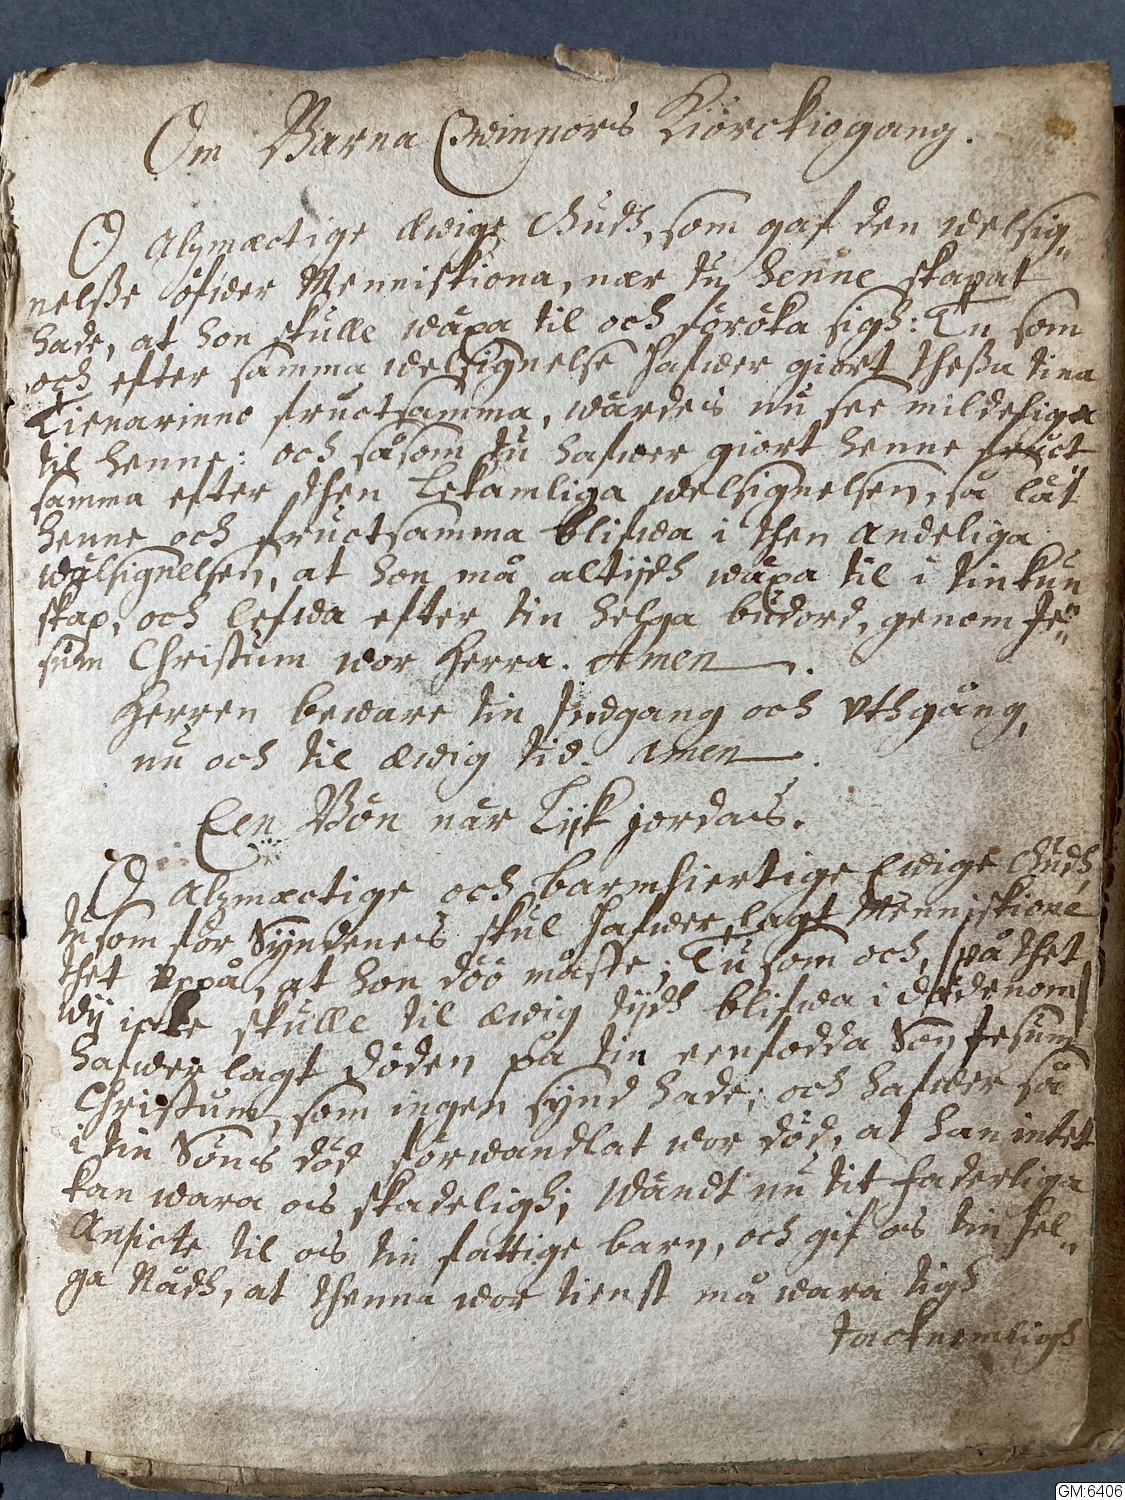 Om Barna Qwinnors Kiörckiogang.
O Alzmæctige Ewige Gudh, som gaf den welsig„
nelße öfwer Menniskiona, nær tu henne skapat
hade, at hon skulle wäxa til och föröka sigh: Tu som
och efter samma welsignelse hafwer giort theßa tina
Tienarinne fructsamma, wärdes nu see mildeliga
til henne: och såsom tu hafwer giort henne fruct
samma efter then Lekamliga welsignelsen, så låt
henne och fructsamma blifwa i then andeliga
wälsignelsen, at hon må altijdh wäxa til i tin kun
skap, och lefwa efter tin helga budord, genom Je„
sum Christum wor Herra. Amen.
Herren beware tin Indgang och vthgång,
nu och til æwig tid. Amen.
Een Bön når Lijk jordas.
O Alzmæctige och barmhertige Ewige Gudh,
tu som för Syndenes skul hafwer lagt Menniskione
thet uppå, at hon döö måste; Tu som och, på thet
wij icke skulle til æwig tijdh blifwa i dödenom
hafwer lagt döden på tin eenfödda Son Jesum
Christum, som ingen synd hade; och hafwer så
i tin Söns död förwandlat wor död, at han intet
kan wara os skadeligh; Wändt nu tit faderliga
Ansicte til os tin fattige barn, och gif os tin hel„
ga Nådh, at thenna wor tienst må wara tigh
tacknemligh
GM:6406